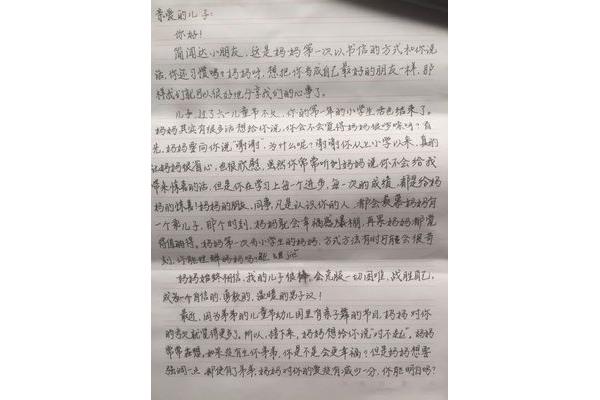 亲爱的儿子：
你好！
简闻达小朋友，这是妈妈第一次以书信的方式和你说
话，你还习惯吗？妈妈呀，想把你当成自己最好的朋友一样，那
样我们就可以很好地分享我们的心事了。
儿子，过了六一儿童节不久，你的第一年的小学生活也结束了。
妈妈其实有很多话想给你说，你会不会觉得妈妈很啰嗦呀？首
先，妈妈要向你说"谢谢"，为什么呢？谢谢你从上小学以来，真的
让妈妈很省心，也很欣慰，虽然你常常听到妈妈说你不会给我
带来惊喜的话，但是你在学习上每一个进步，每一次的成绩，都是给妈
妈的惊喜！妈妈的朋友，同事，凡是认识你的人，都会羡慕妈妈有
一个乖儿子，那个时刻，妈妈就会幸福感爆棚，再累妈妈都觉
得值得。妈妈第一次当小学生的妈妈，方式方法有时可能会很苛
刻，你能理解妈妈吗？
妈妈始终相信，我的儿子很棒，会克服一切困难，战胜自己，
成为一个自信的，勇敢的，温暖的男子汉！
最近，因为弟弟的儿童节幼儿园里有亲子舞的节目，妈妈对你
的关心就觉得更少了。所以，接下来，妈妈想给你说"对不起"，妈妈
常常在想，如果没有生你弟弟，你是不是会更幸福？但是妈妈想要
强调一点，即使有了弟弟，妈妈对你的爱没有减少一分，你能明白吗？